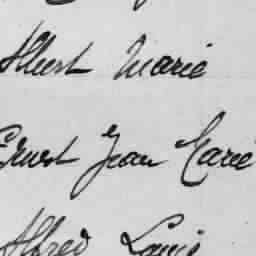 Albert Marie
Ernest Jean Marie
Alfred Louis